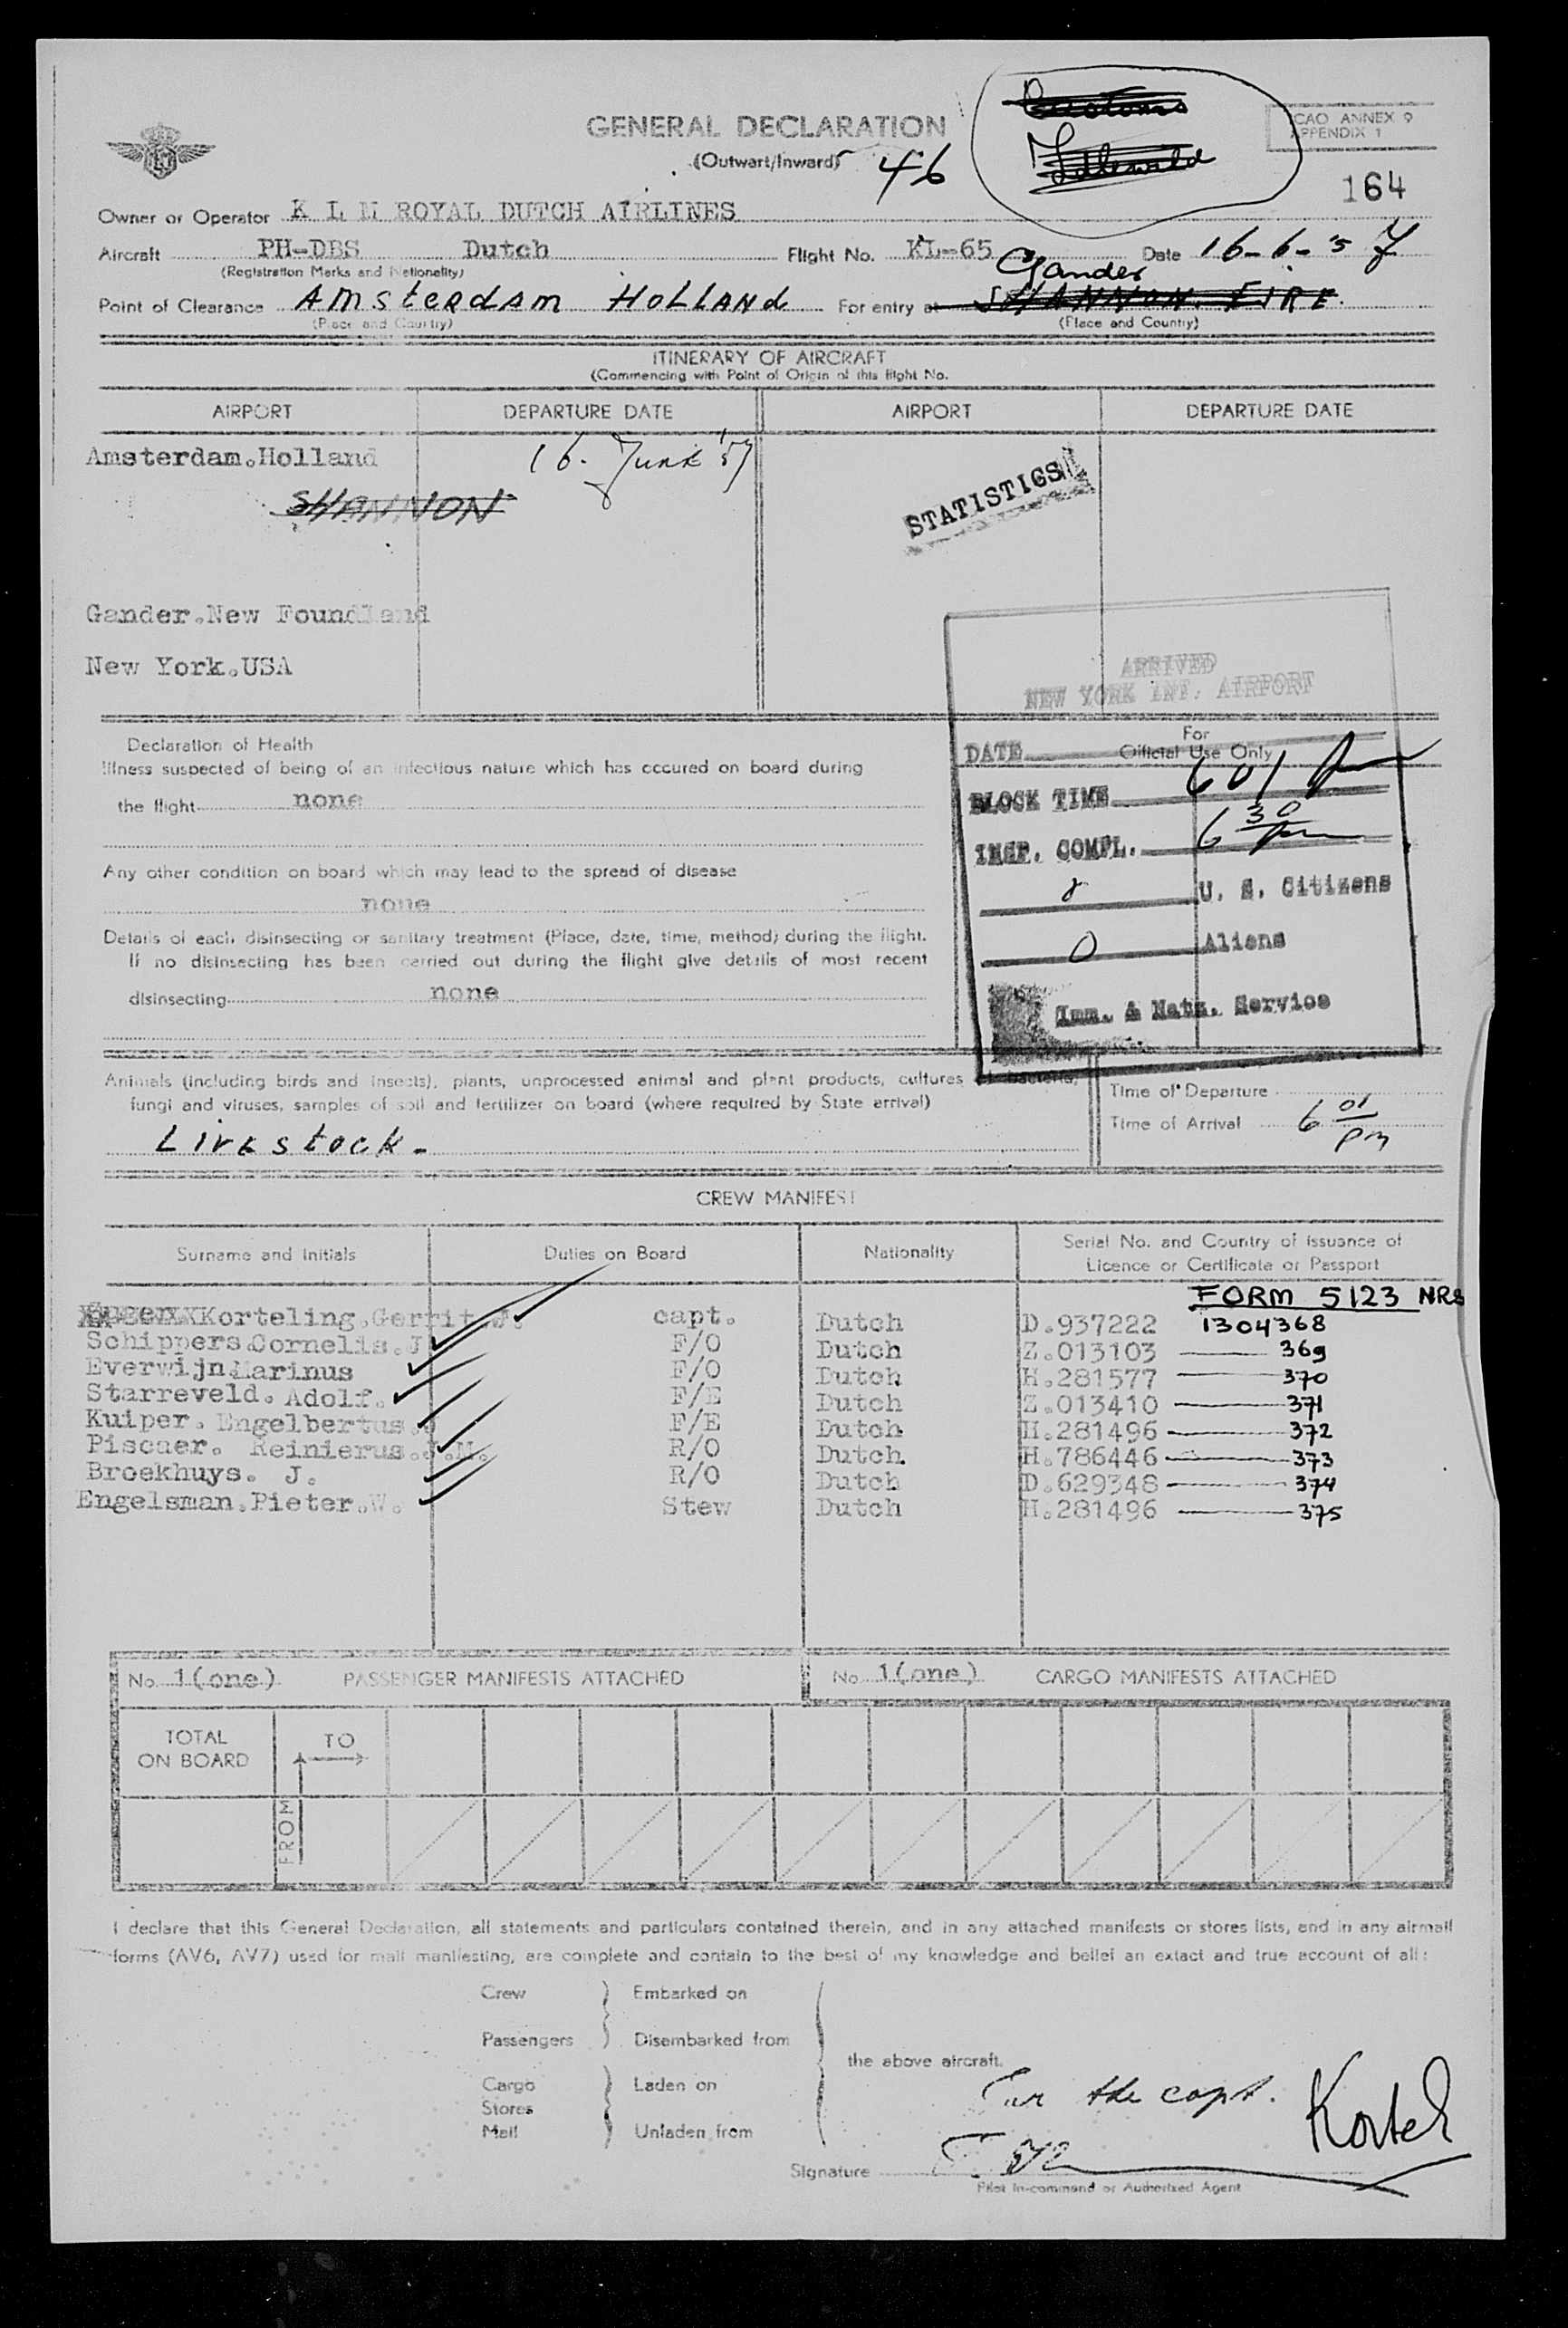 GENERAL DECLARATION
(Outwart/Inward)
46
Customs
Idlewild
ICAO ANNEX 9
APPENDIX 1
164
Owner or Operator K L M ROYAL DUTCH AIRLINES
Aircraft PH-DBS Dutch Flight No. KL-65 Date 16-6-'57
(Registration Marks and Nationality)
Gander
Point of Clearance Amsterdam Holland For entry at SHANNON. EIRE.
(Place and Country) (Place and Country)
ITINERARY OF AIRCRAFT
(Commencing with Point of Origin of this flight No.
AIRPORT DEPARTURE DATE AIRPORT DEPARTURE DATE
Amsterdam.Holland 16. June '57
SHANNON
STATISTICS
Gander.New Foundland
New York.USA
ARRIVED
NEW YORK INT. AIRPORT
For
Official Use Only
DATE
BLOCK TIME 601 pm
INSP. COMPL. 6 30 pm
8 U. S. Citizens
0 Aliens
Imm. & Natz. Service
Declaration of Health
Illness suspected of being of an infectious nature which has occured on board during
the flight none
Any other condition on board which may lead to the spread of disease
none
Details of each disinsecting or sanitary treatment (Place, date, time, method) during the flight.
If no disinsecting has been carried out during the flight give details of most recent
disinsecting none
Animals (including birds and insects), plants, unprocessed animal and plant products, cultures of bacteria,
fungi and viruses, samples of soil and fertilizer on board (where required by State arrival)
Livestock.
Time of Departure
Time of Arrival 6 01 pm
CREW MANIFEST
Surname and Initials Duties on Board Nationality Serial No. and Country of issuance of
Licence or Certificate or Passport
FORM 5123 NRS
Korteling.Gerrit.J. capt. Dutch D.937222 1304368
Schippers.Cornelis.J F/O Dutch Z.013103 369
Everwijn.Marinus F/O Dutch H.281577 370
Starreveld. Adolf. F/E Dutch Z.013410 371
Kuiper. Engelbertus. F/E Dutch H.281496 372
Piscaer. Reinierus.J.M. R/O Dutch. H.786446 373
Broekhuys. J. R/O Dutch D.629348 374
Engelsman.Pieter.W. Stew Dutch H.281496 375
No. 1(one) PASSENGER MANIFESTS ATTACHED No. 1(one) CARGO MANIFESTS ATTACHED
TOTAL
ON BOARD
TO
FROM
I declare that this General Declaration, all statements and particulars contained therein, and in any attached manifests or stores lists, and in any airmail
forms (AV6, AV7) used for mail manifesting, are complete and contain to the best of my knowledge and belief an extact and true account of all:
Crew Embarked on
Passengers Disembarked from
the above aircraft.
Cargo Laden on
Stores
Mail Unladen from
For the capt. Kortel
Signature
Pilot in-command or Authorized Agent